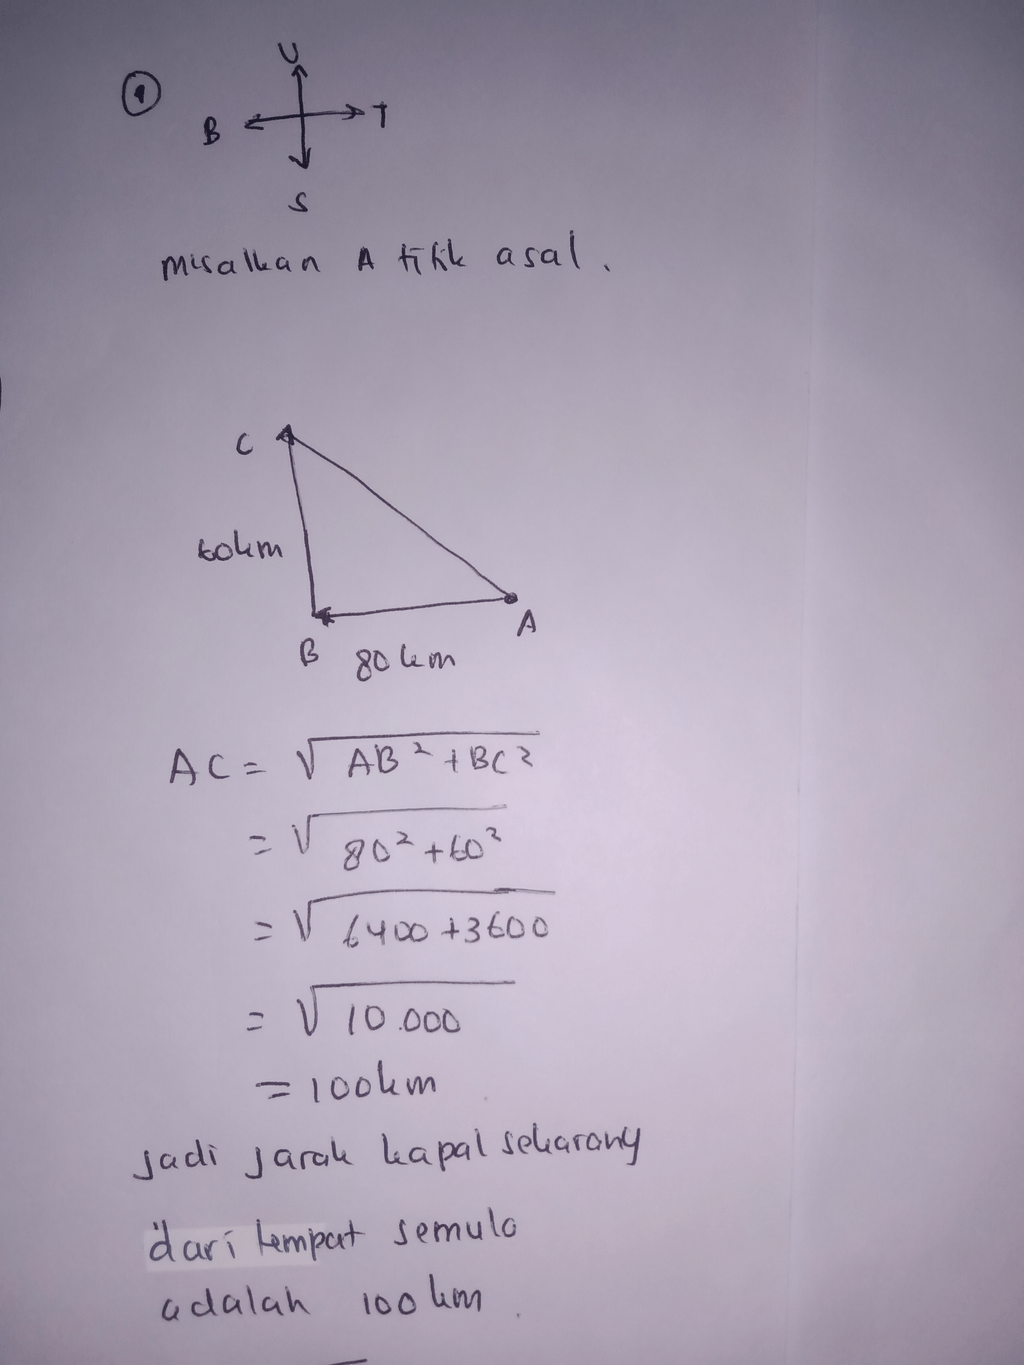 U
①
B
T
S
misalkan A titik asal.
C
60km
B
A
80 km
AC = √AB² + BC²
= √80² + 60²
= √6400 + 3600
= √10.000
= 100km
Jadi jarak kapal sekarang
dari tempat semula
adalah 100 km.